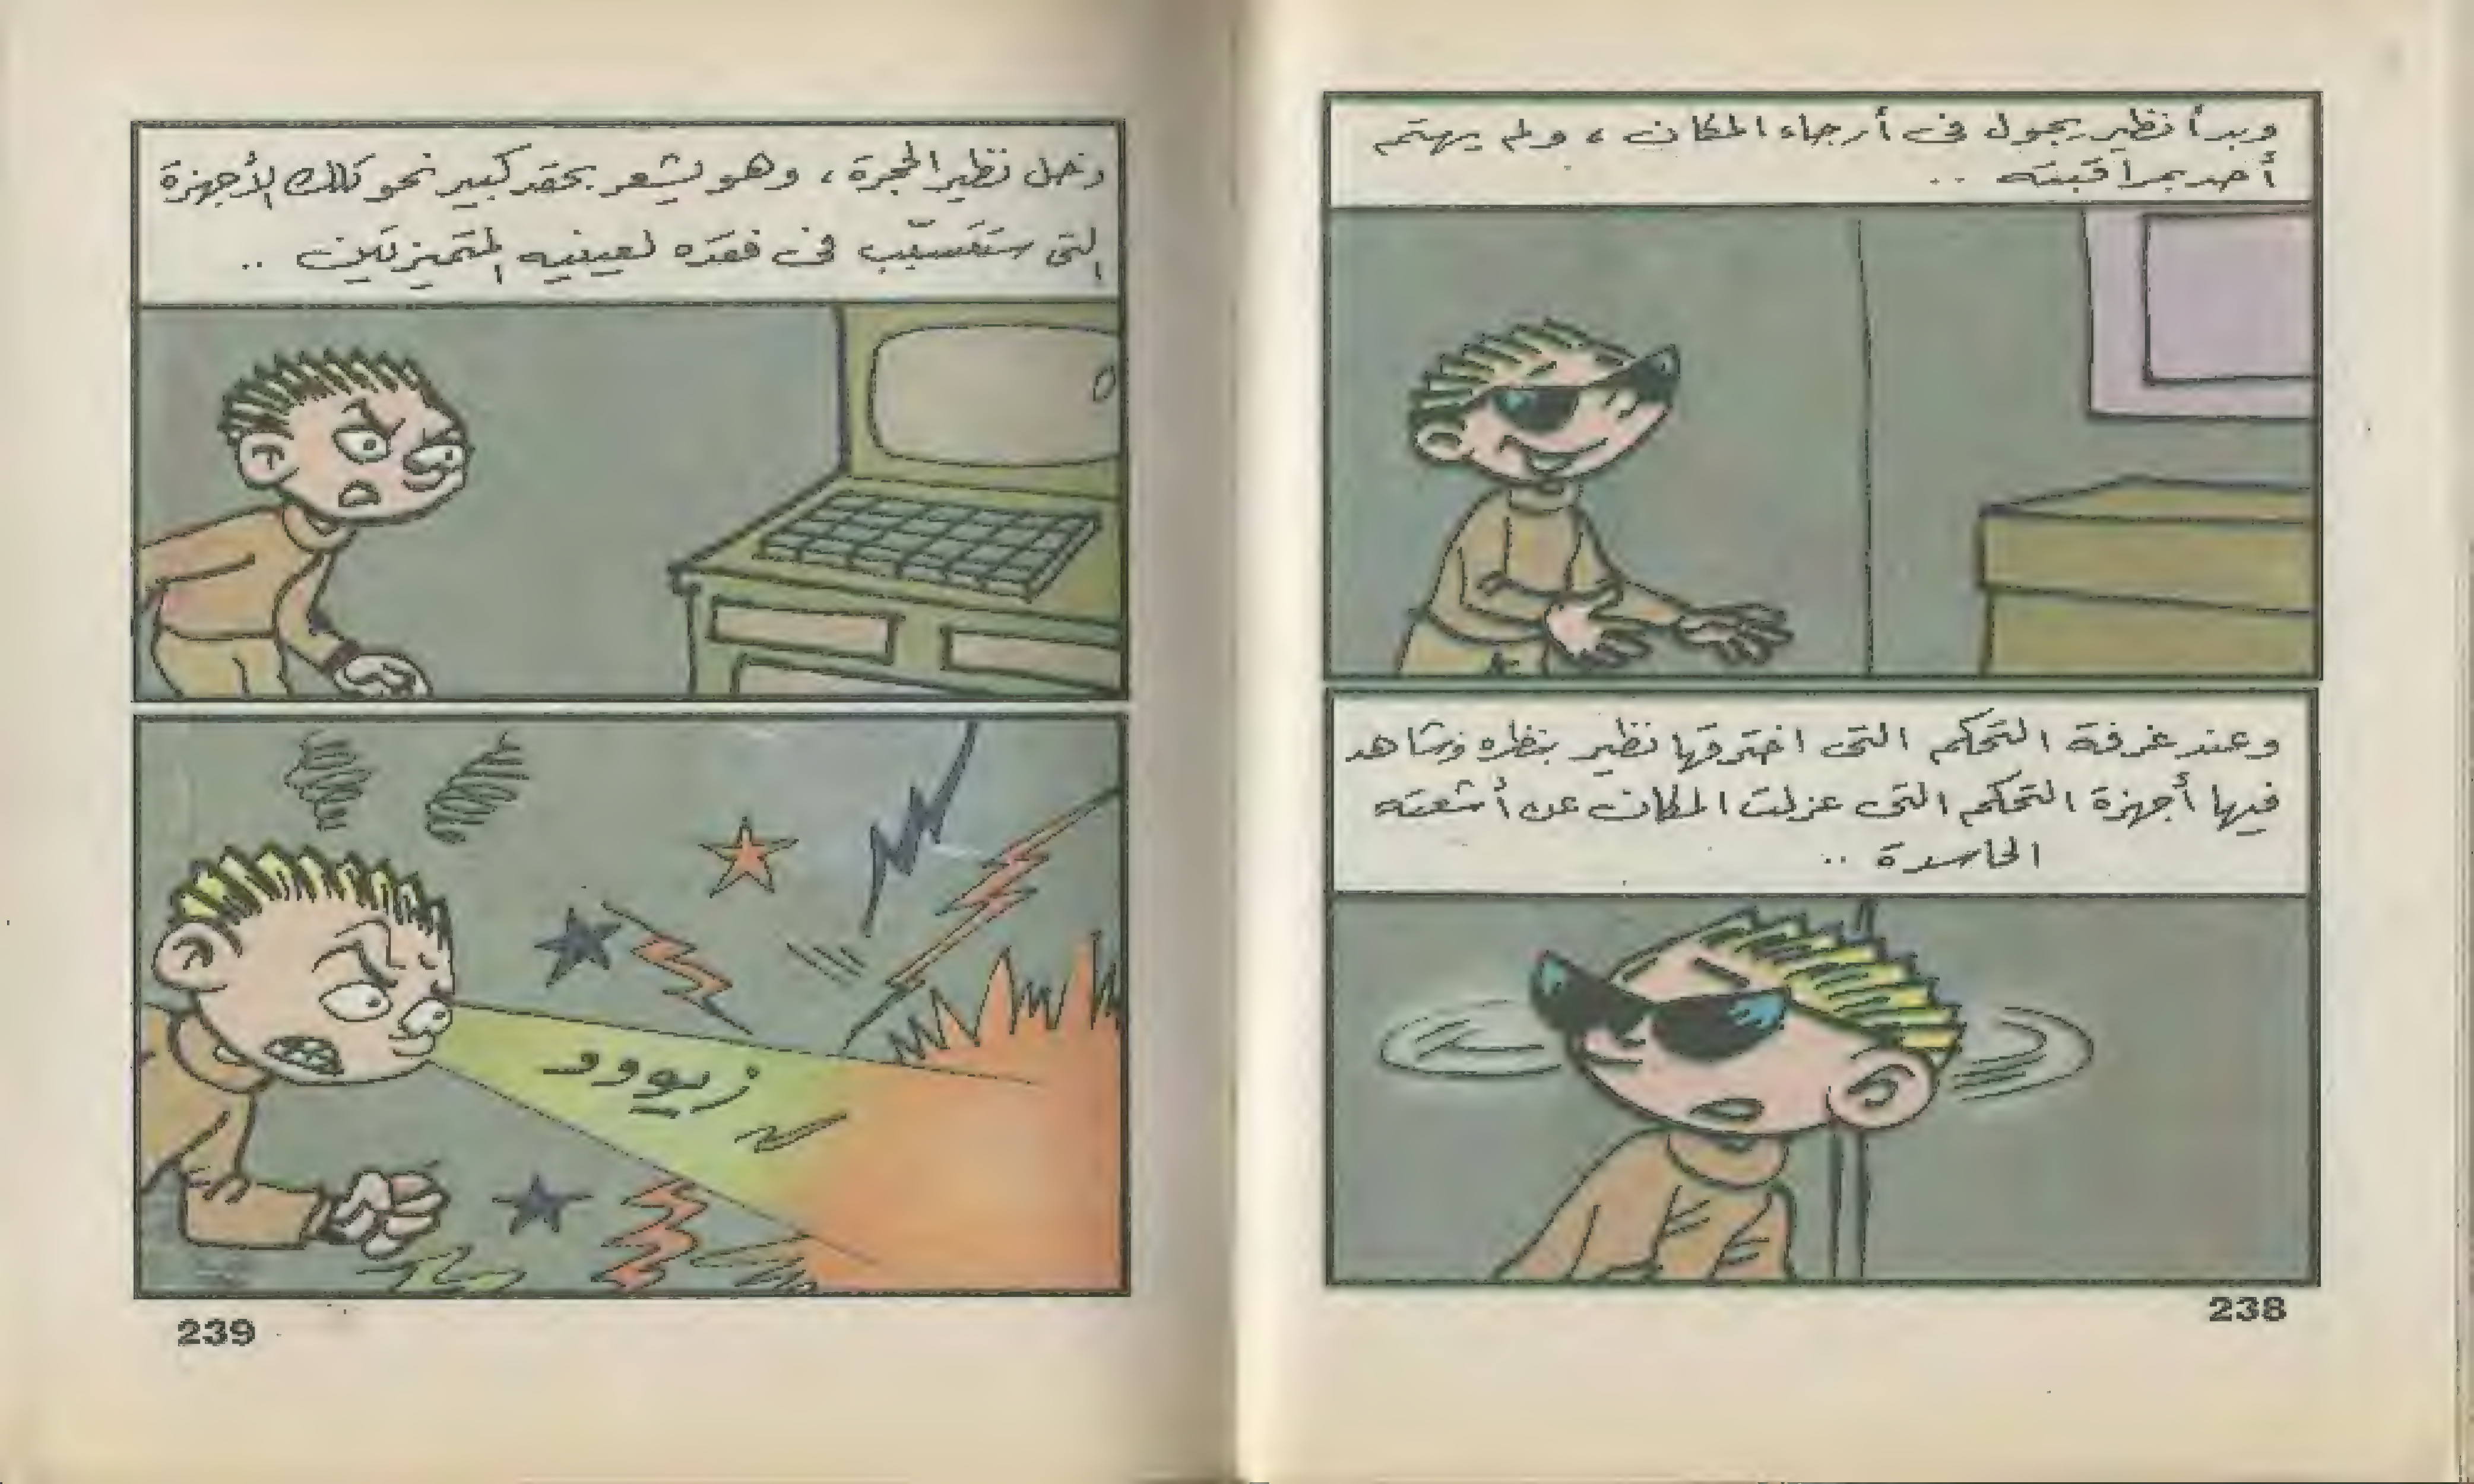 وبدأ نظير يجول فى أرجاء المكان ، ولم يهتم
أحد بمراقبته ..
وعند غرفة التحكم التى اخترقها نظير بنظره وشاهد
فيها أجهزة التحكم التى عزلت المكان عن أشعته
الحاسدة ..
238
دخل نظير الحجرة ، وهو يشعر بحقد كبير نحو تلك الأجهزة
التى ستتسبّب فى فقده لعينيه المتميزتين ..
زيووو
239